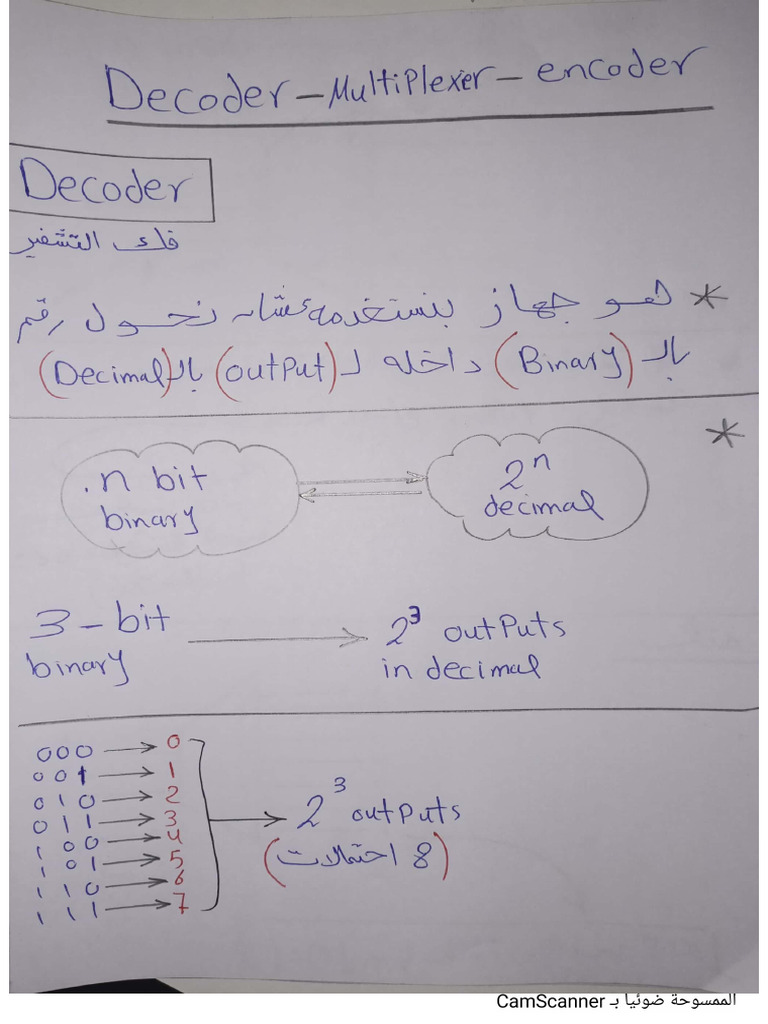 Decoder – Multiplexer – encoder
Decoder
فك التشفير
* هو جهاز بنستخدمه عشان نحول رقم
بالـ (Binary) داخله لـ (output) بالـ (Decimal)
*
n bit
binary
2ⁿ
decimal
3-bit
binary
2³ outputs
in decimal
000 → 0
001 → 1
010 → 2
011 → 3
100 → 4
101 → 5
110 → 6
111 → 7
2³ outputs
(8 احتمالات)
الممسوحة ضوئيا بـ CamScanner